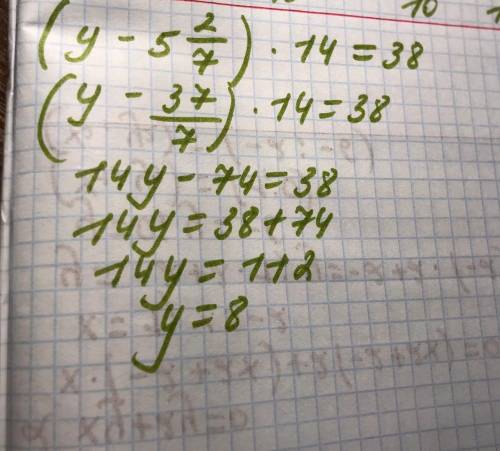 (y - 5 2/7) · 14 = 38
(y - 37/7) · 14 = 38
14y - 74 = 38
14y = 38 + 74
14y = 112
y = 8